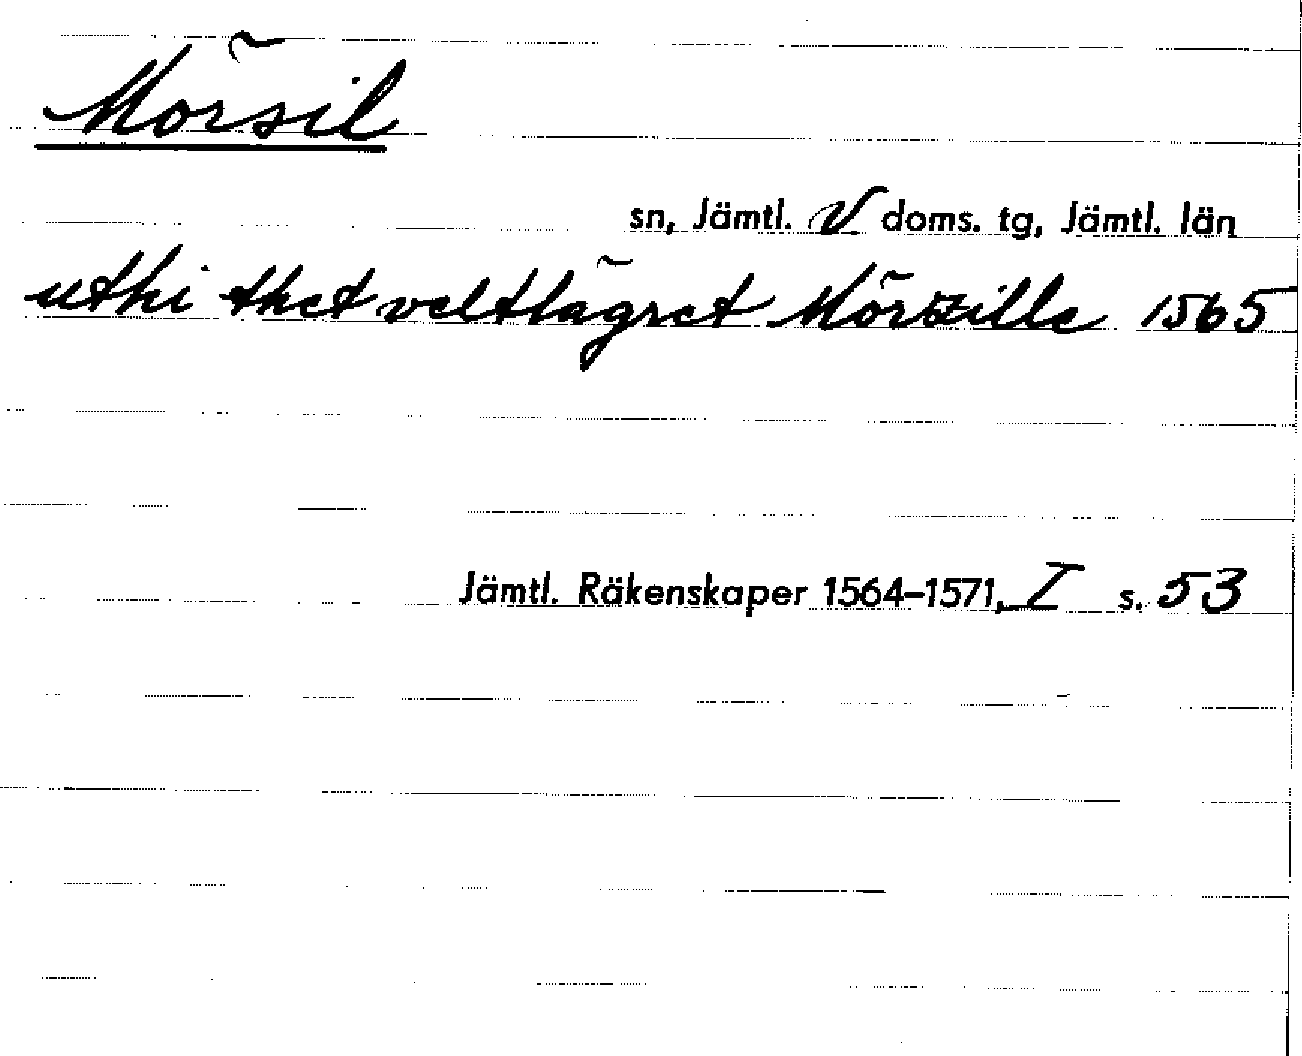 Mörsil
sn, Jämtl. V doms. tg, Jämtl. län
uthi thet veltlägret Mörszille 1565
Jämtl. Räkenskaper 1564–1571, I s. 53